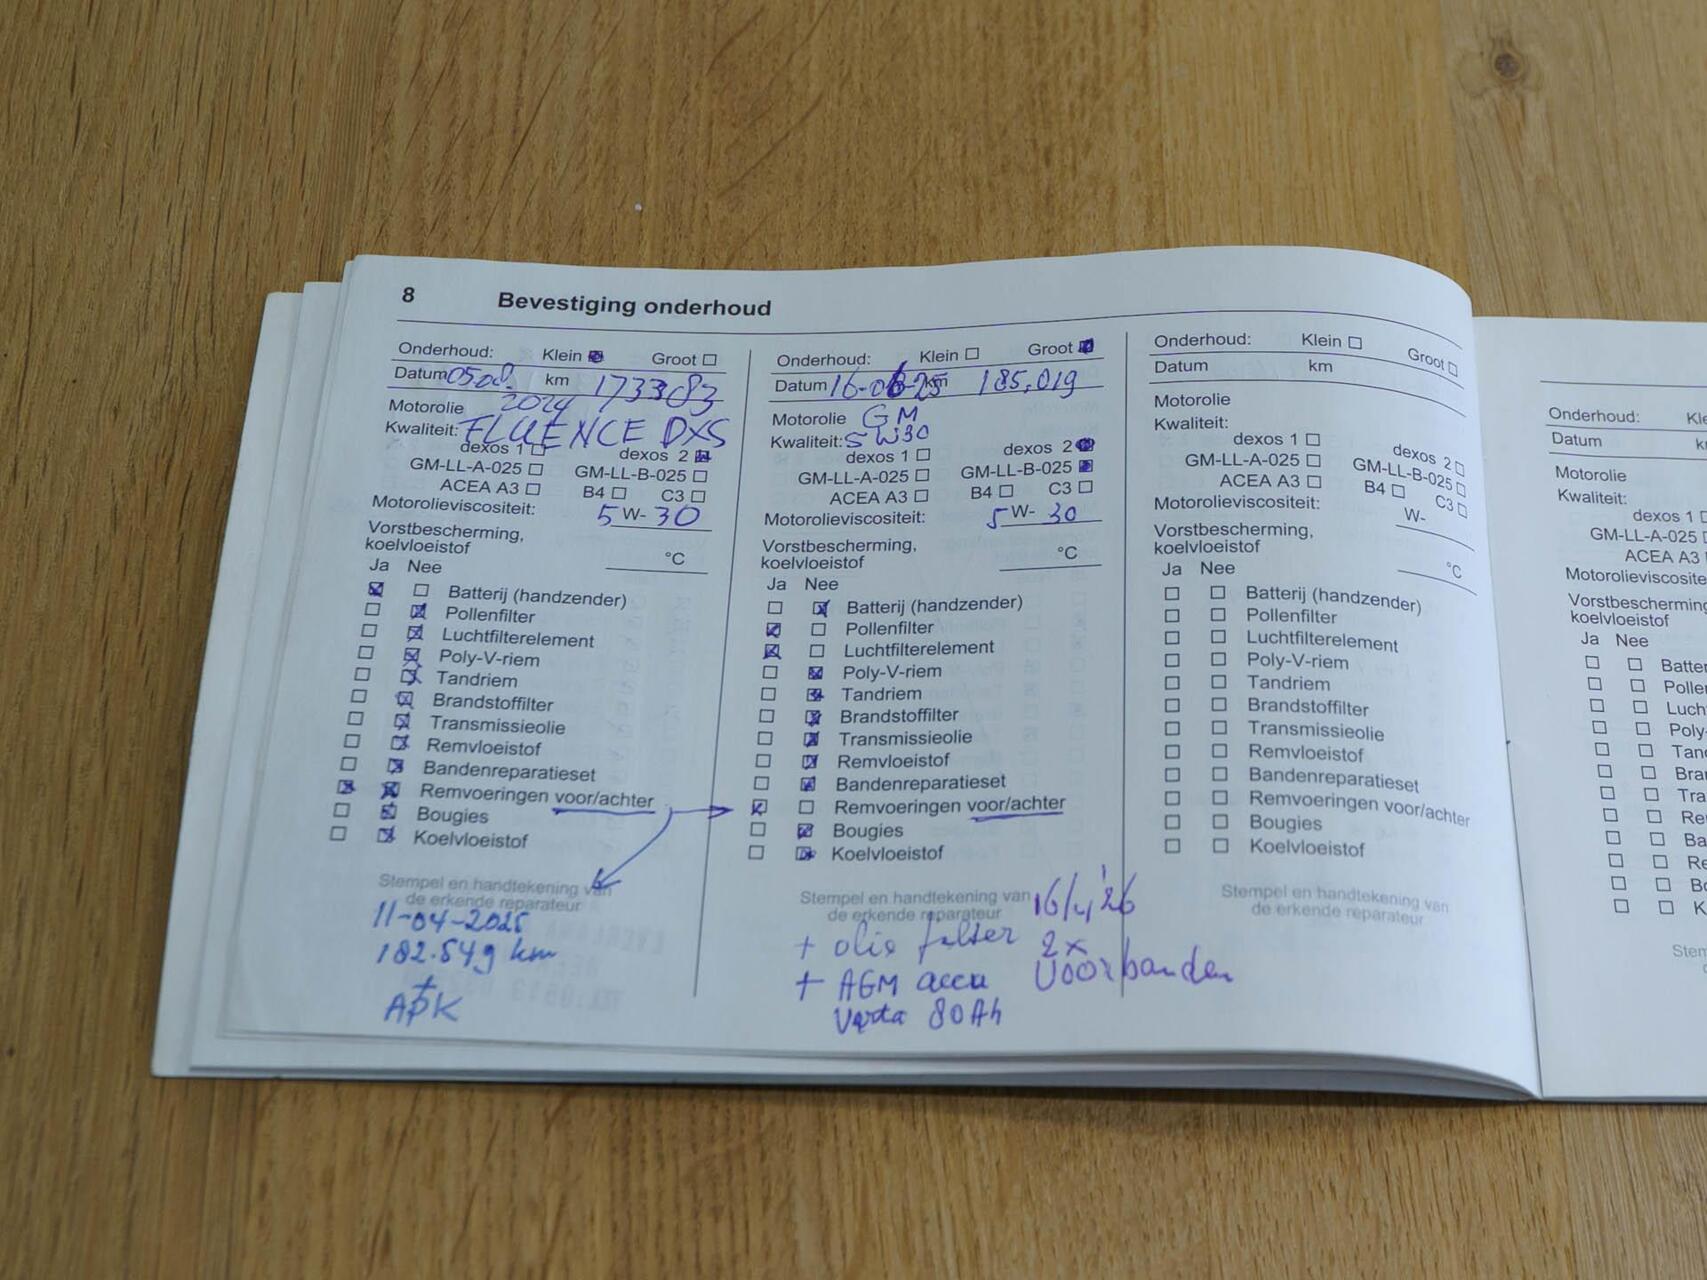 8 Bevestiging onderhoud
Onderhoud: Klein Groot
Datum 05 08. 2024 km 173383
Motorolie
Kwaliteit: FLUENCE DXS
dexos 1 dexos 2
GM-LL-A-025 GM-LL-B-025
ACEA A3 B4 C3
Motorolieviscositeit: 5 W- 30
Vorstbescherming,
koelvloeistof °C
Ja Nee
Batterij (handzender)
Pollenfilter
Luchtfilterelement
Poly-V-riem
Tandriem
Brandstoffilter
Transmissieolie
Remvloeistof
Bandenreparatieset
Remvoeringen voor/achter
Bougies
Koelvloeistof
Stempel en handtekening van
de erkende reparateur
11-04-2025
182.549 km
+
APK
Onderhoud: Klein Groot
Datum 16-06-25 km 185,019
Motorolie GM
Kwaliteit: 5W30
dexos 1 dexos 2
GM-LL-A-025 GM-LL-B-025
ACEA A3 B4 C3
Motorolieviscositeit: 5 W- 30
Vorstbescherming,
koelvloeistof °C
Ja Nee
Batterij (handzender)
Pollenfilter
Luchtfilterelement
Poly-V-riem
Tandriem
Brandstoffilter
Transmissieolie
Remvloeistof
Bandenreparatieset
Remvoeringen voor/achter
Bougies
Koelvloeistof
Stempel en handtekening van
de erkende reparateur
+ olie filter
+ AGM accu
Varta 80Ah
16/4/'26
2x
Voorbanden
Onderhoud: Klein Groot
Datum km
Motorolie
Kwaliteit:
dexos 1 dexos 2
GM-LL-A-025 GM-LL-B-025
ACEA A3 B4 C3
Motorolieviscositeit: W-
Vorstbescherming,
koelvloeistof °C
Ja Nee
Batterij (handzender)
Pollenfilter
Luchtfilterelement
Poly-V-riem
Tandriem
Brandstoffilter
Transmissieolie
Remvloeistof
Bandenreparatieset
Remvoeringen voor/achter
Bougies
Koelvloeistof
Stempel en handtekening van
de erkende reparateur
Onderhoud: Kle
Datum k
Motorolie
Kwaliteit:
dexos 1
GM-LL-A-025
ACEA A3
Motorolieviscosite
Vorstbescherming
koelvloeistof
Ja Nee
Batter
Polle
Lucht
Poly-
Tand
Bra
Tra
Re
Ba
Re
Bo
K
Stem